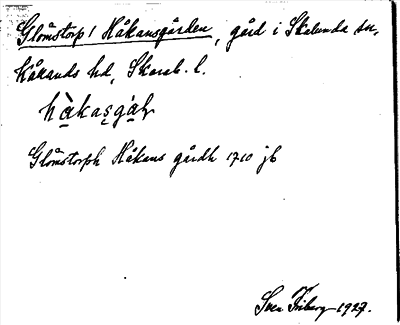 Glömstorp, Håkansgården, gård i Skalunda sn,
Kållands hd, Skarab. l.
hàkasgaḷ
Glömstorph Håkans gårdh 1710 jb
Sven Friberg 1927.